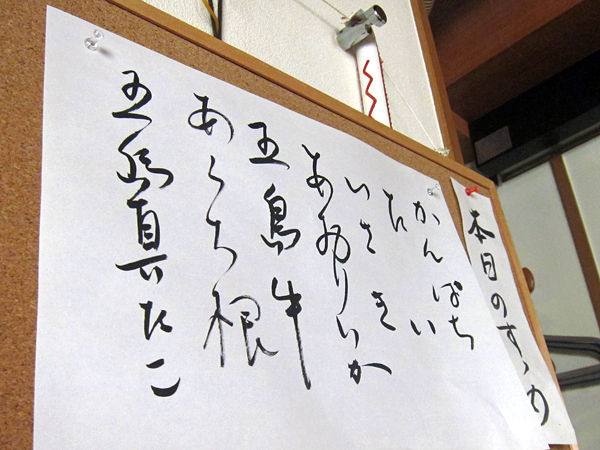 本日のすゝめ
かんぱち
たい
いさき
あおりいか
五島牛
あくち根
五島真だこ